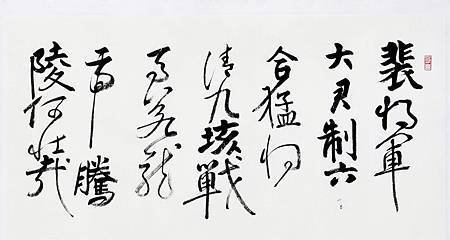 裴将軍
大君制六
合猛将
清九垓戰
馬若龍
虎騰
陵何壮哉